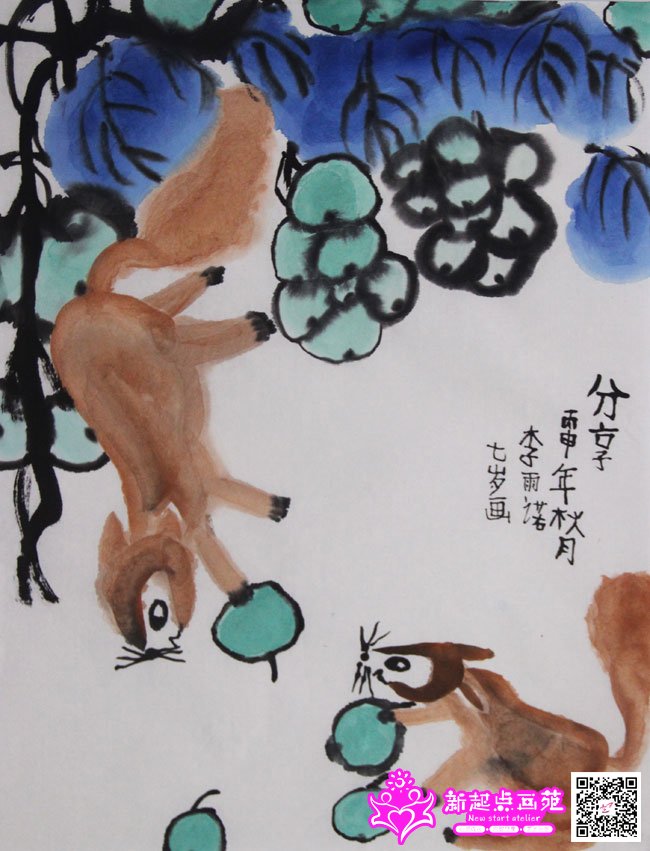 分享
丙申年秋月
李雨诺
七岁画
新起点画苑
New start atelier